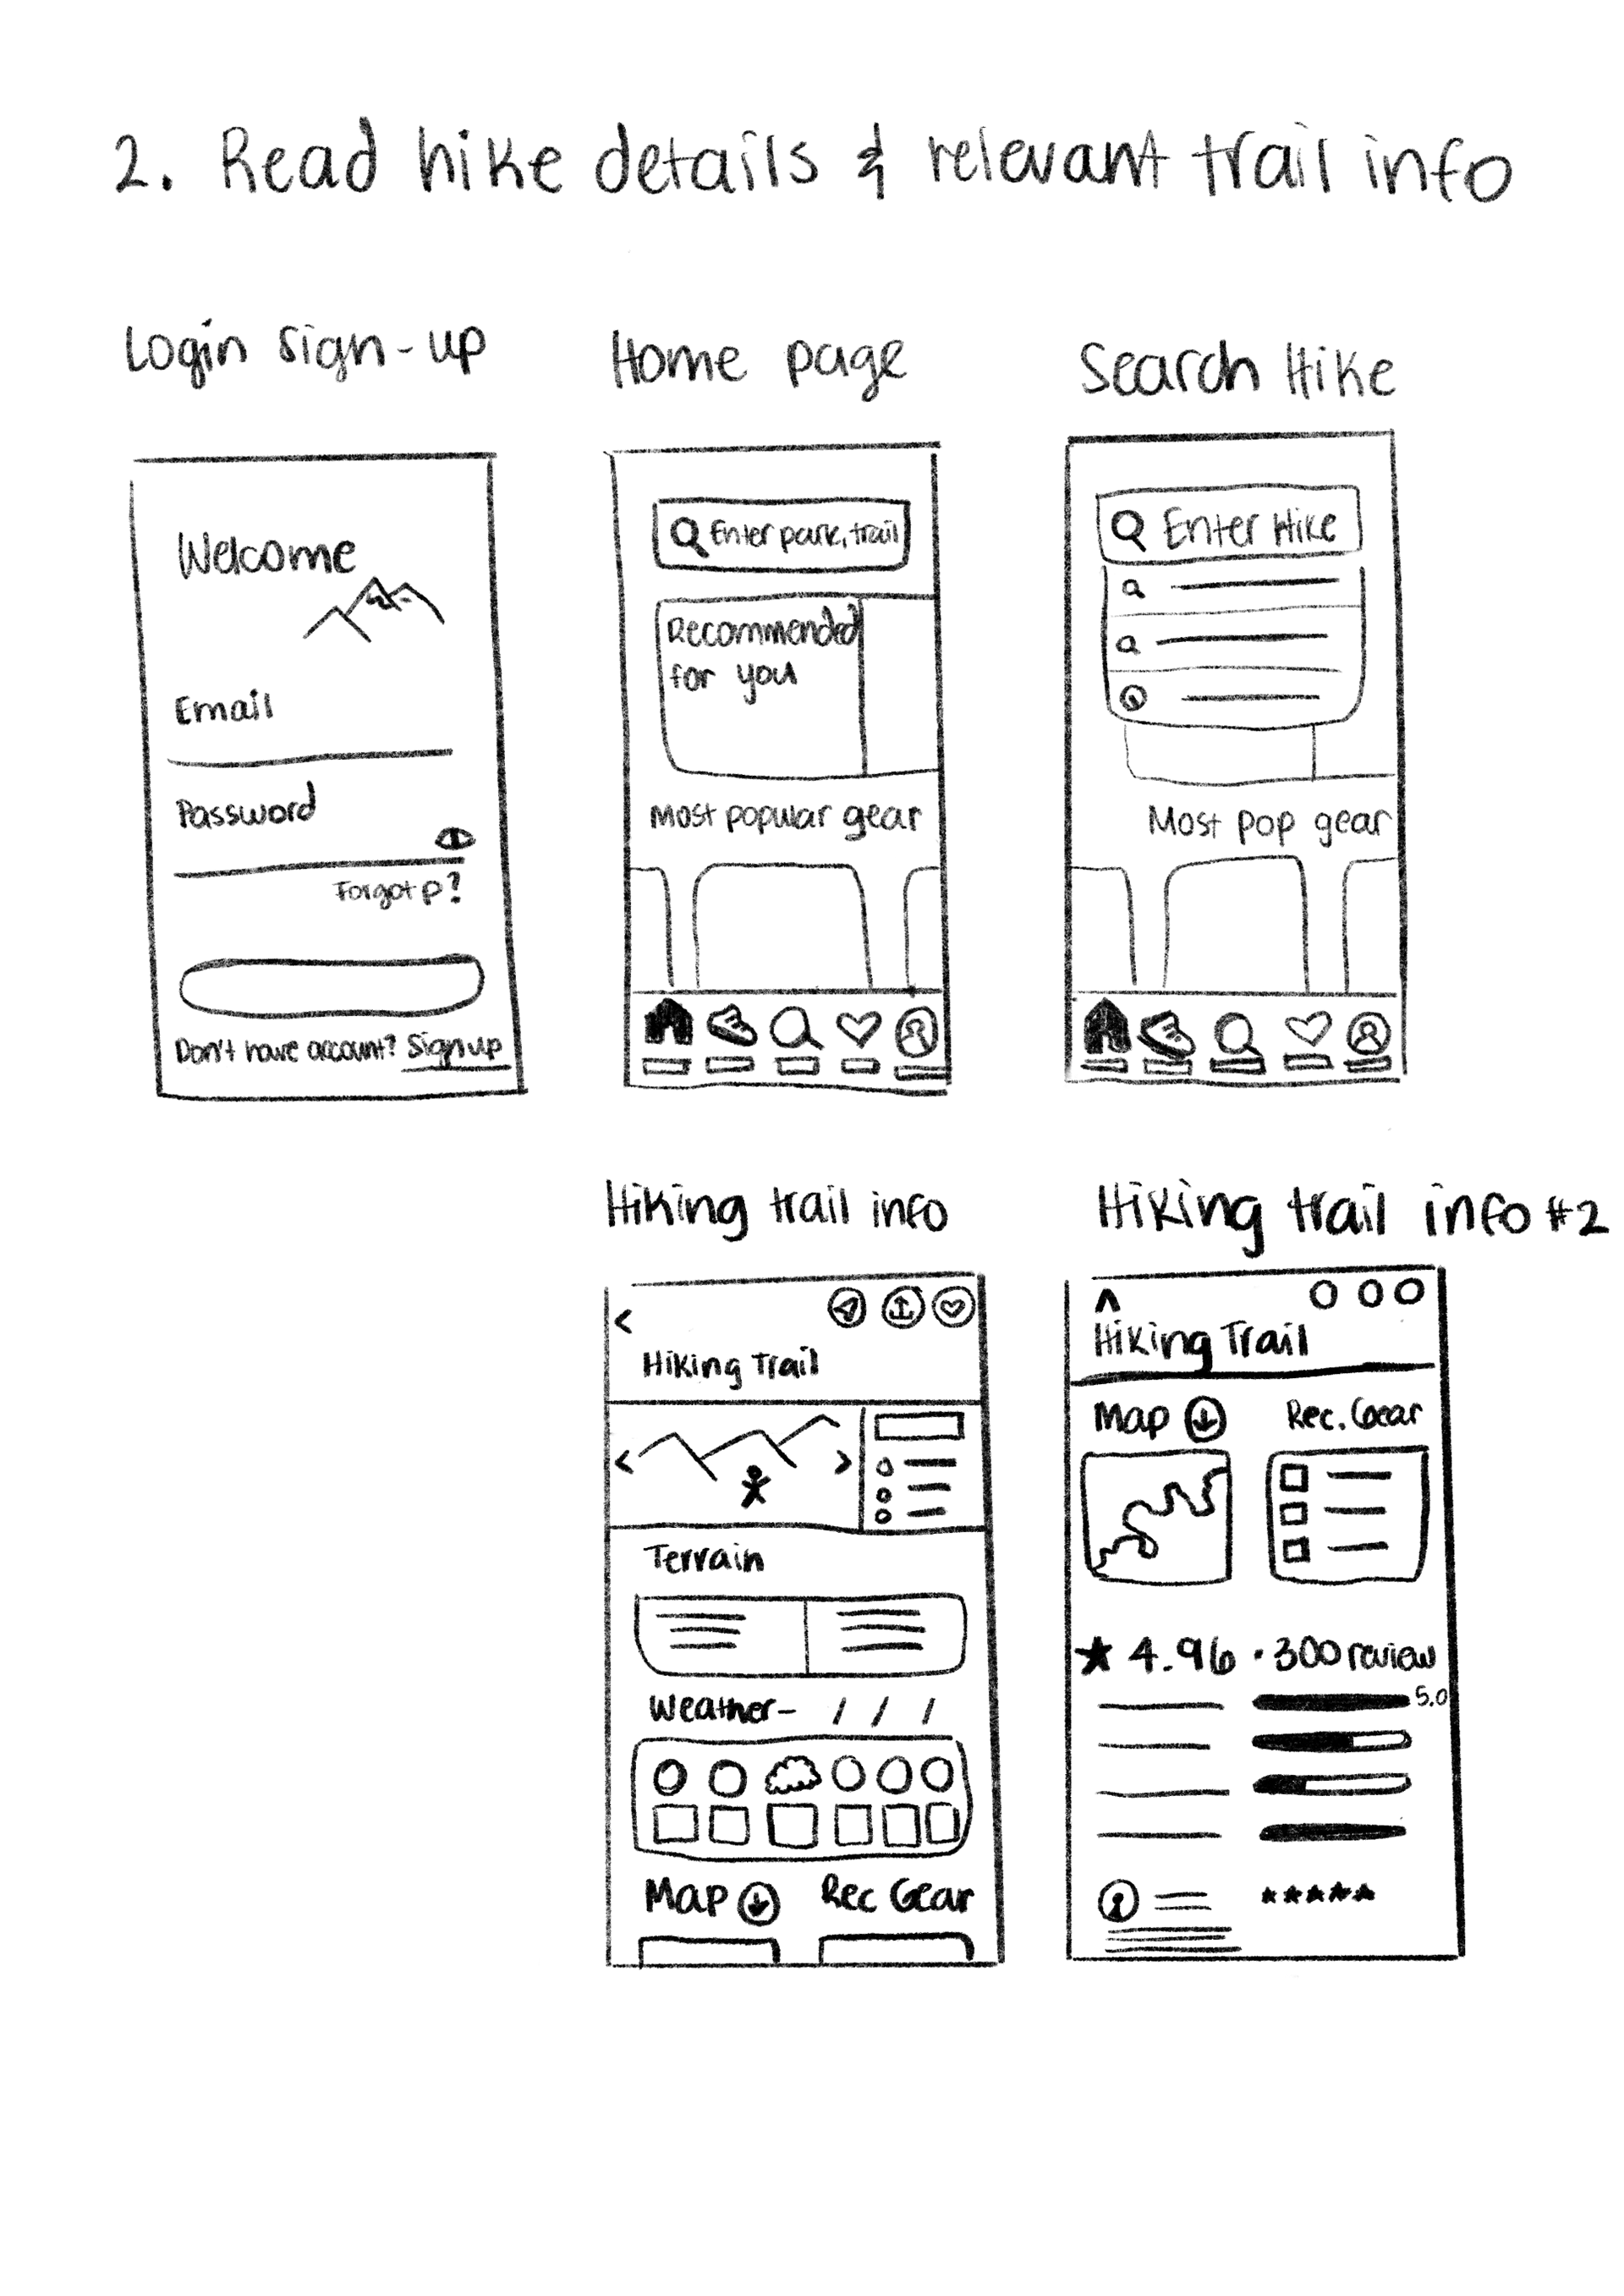 2. Read hike details & relevant trail info
Login sign-up
Welcome
Email
Password
Forgot p?
Don't have account? Sign up
Home page
Enter park, trail
Recommended
for you
Most popular gear
Search Hike
Enter Hike
Most pop gear
Hiking trail info
Hiking Trail
Terrain
Weather - / / /
Map Rec Gear
Hiking trail info #2
Hiking Trail
Map Rec. Gear
★ 4.96 · 300 review
5.0
★★★★★